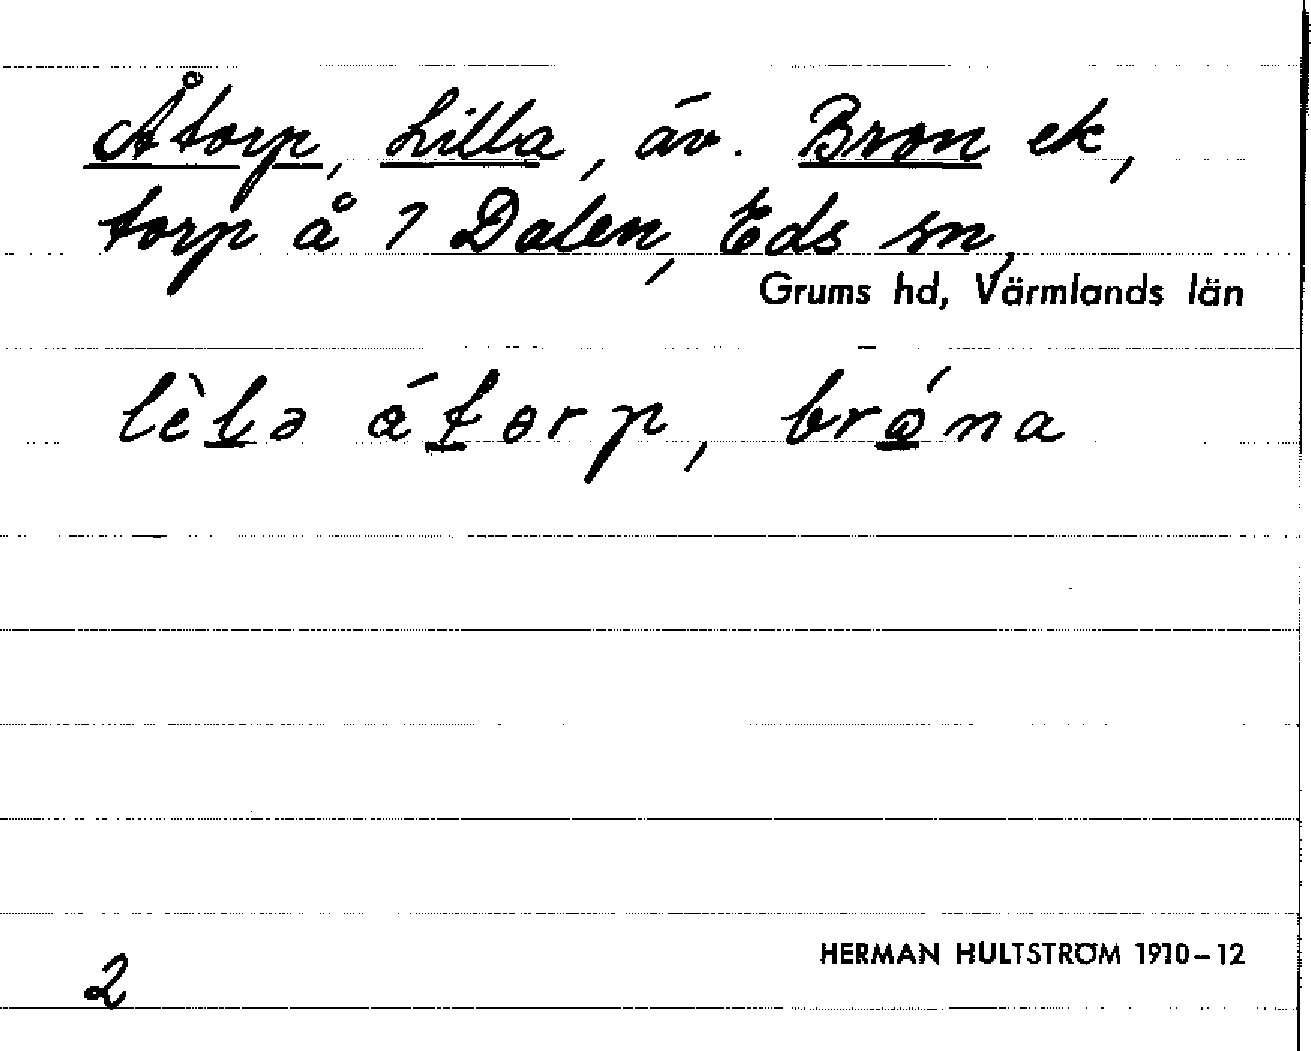 Åtorp, Lilla, äv. Bron ek,
torp å 7 Dalen, Eds sn,
Grums hd, Värmlands län
lèlə átorp, bróna
HERMAN HULTSTRÖM 1910–12
2